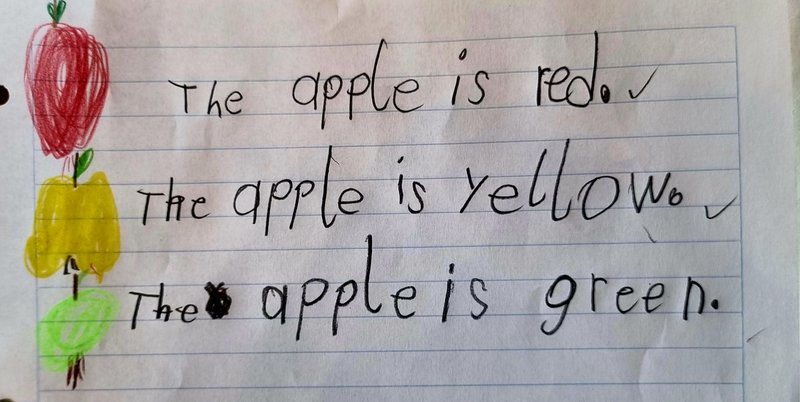 The apple is red. ✓
The apple is yellow. ✓
The apple is green.